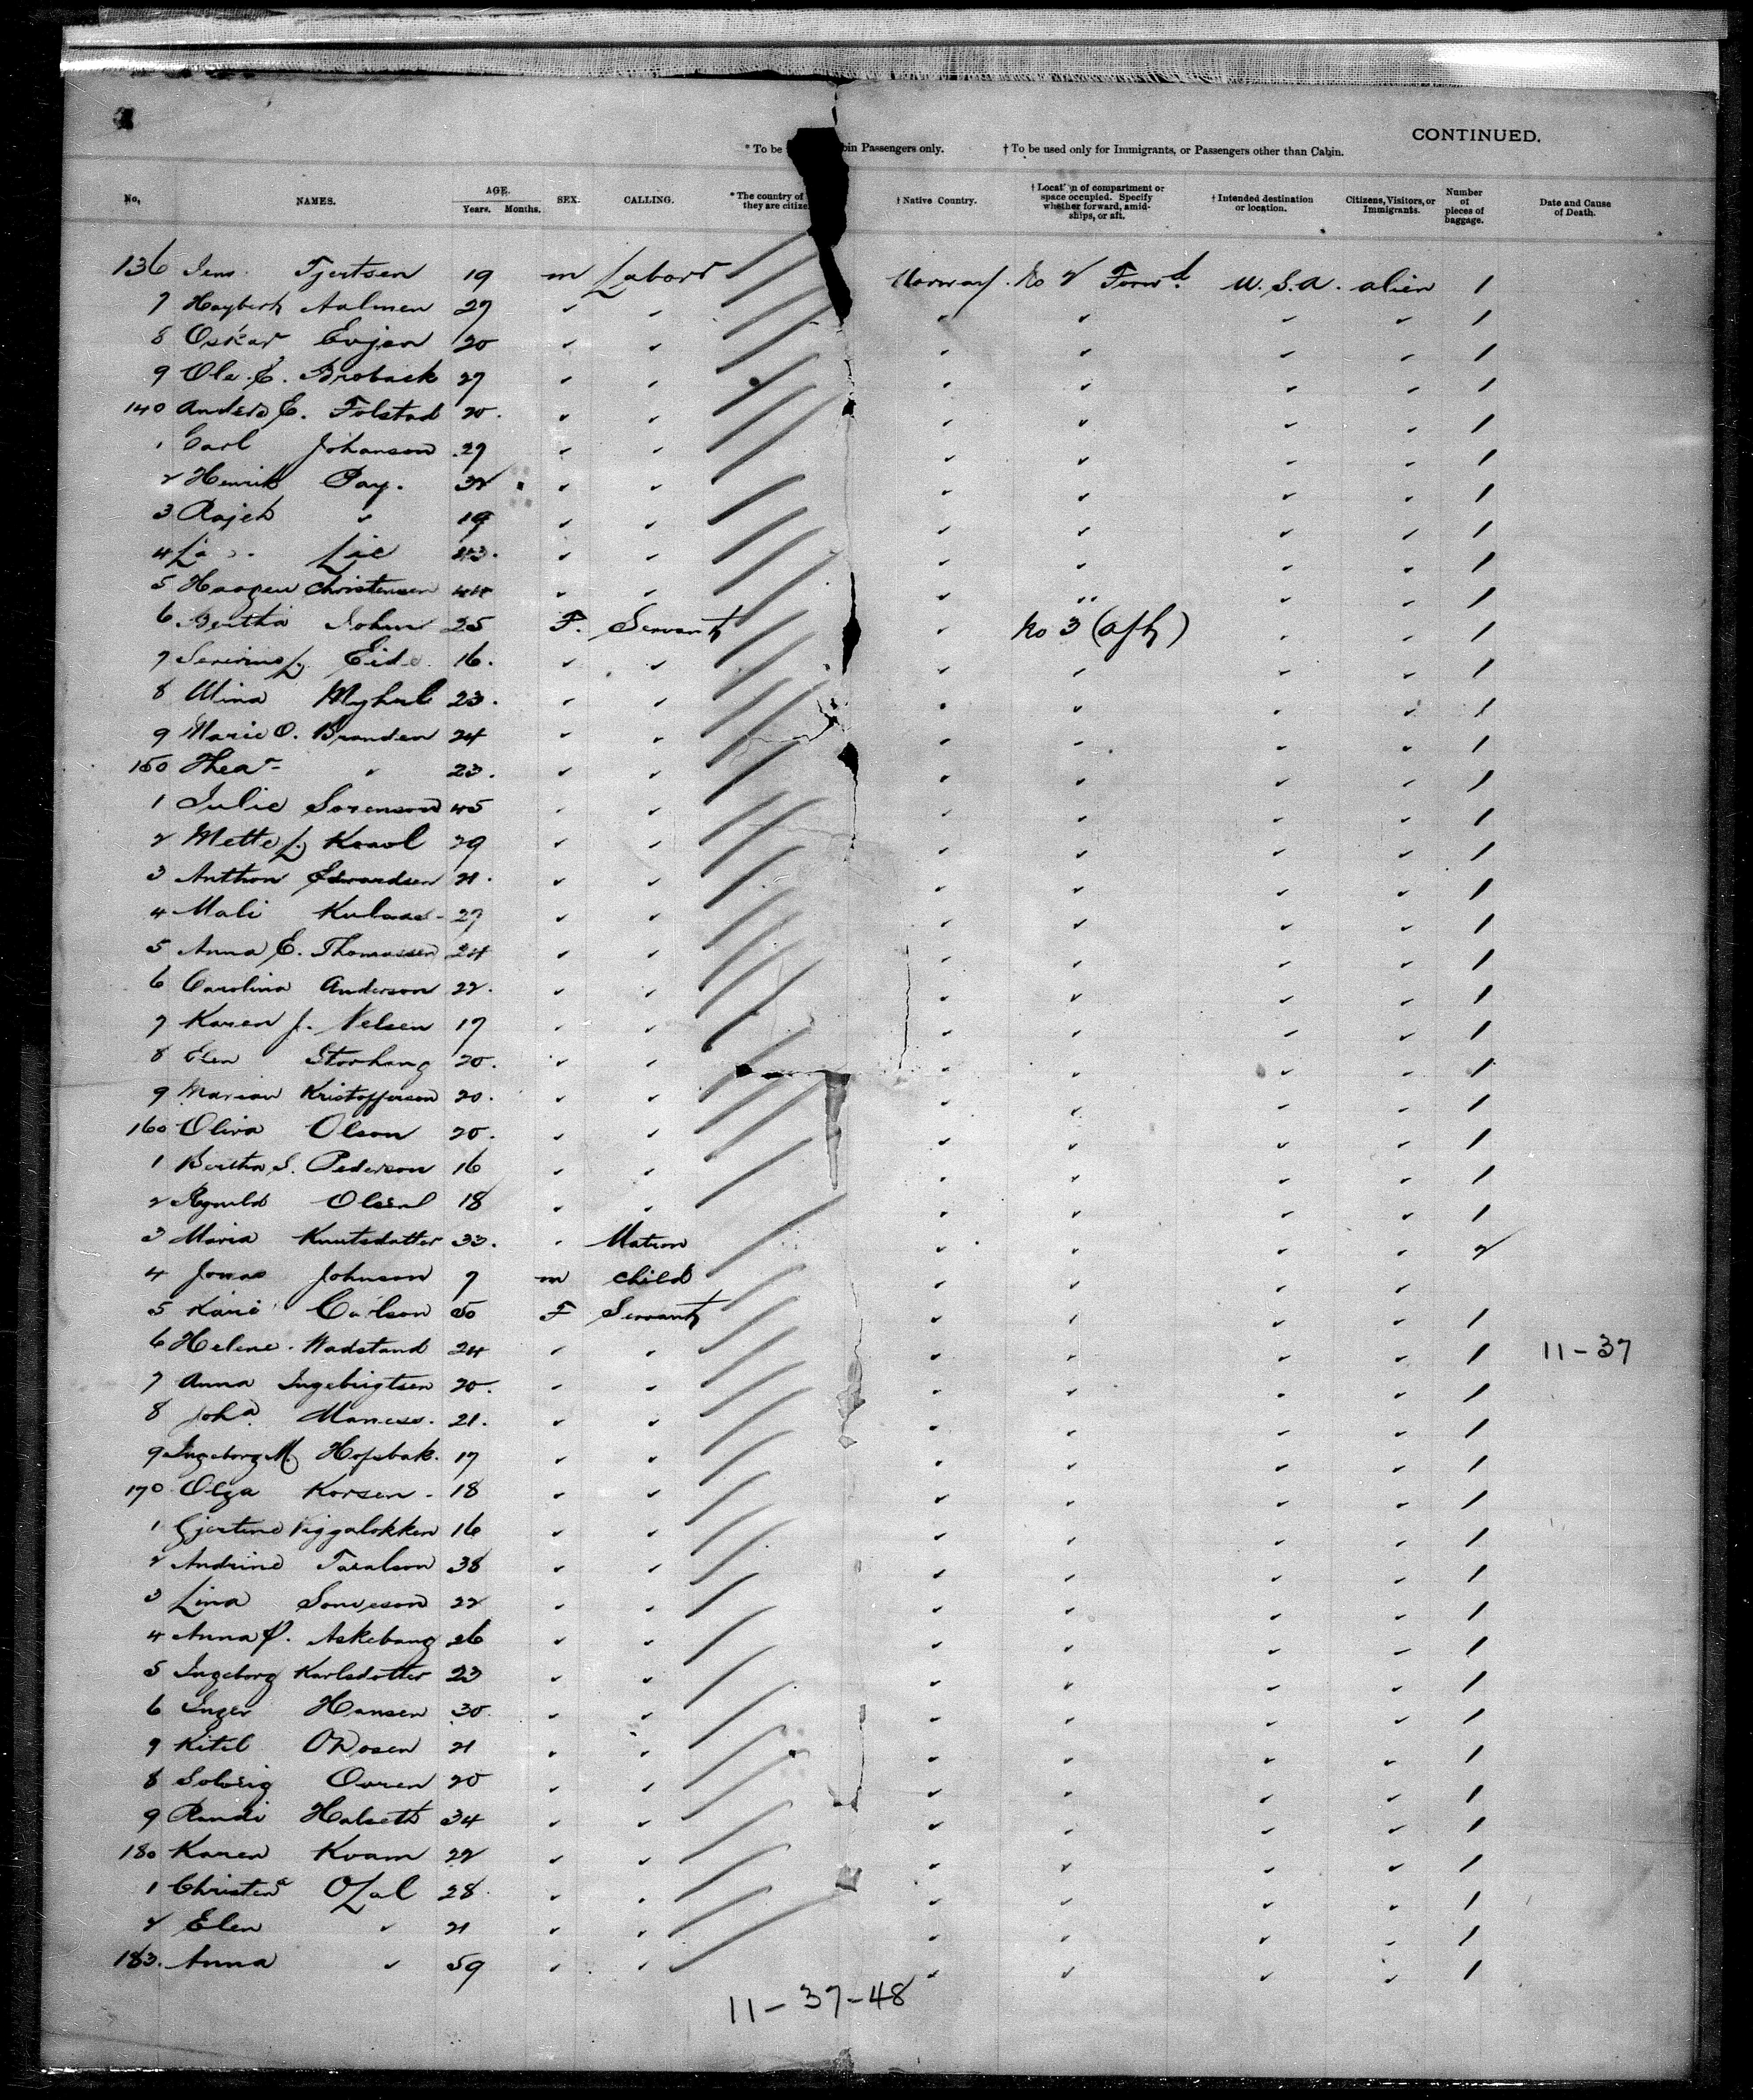 CONTINUED.
* To be bin Passengers only. † To be used only for Immigrants, or Passengers other than Cabin.
No. NAMES. AGE. Years. Months. SEX. CALLING. * The country of they are citize † Native Country. † Locat n of compartment or space occupied. Specify whether forward, amidships, or aft. † Intended destination or location. Citizens, Visitors, or Immigrants. Number of pieces of baggage. Date and Cause of Death.
136 Jens Tjertsen 19 m Labour Norway No 2 Forwd. U.S.A. alien 1
7 Aalmen 27 " " " " " " 1
8 Oskar Evjen 20 " " " " " " 1
9 Ole E. Broback 27 " " " " " " 1
140 Anders E. Folstad 20 " " " " " " 1
1 Carl Johanson 29 " " " " " " 1
2 Henrik Pay. 32 " " " " " " 1
3 " 19 " " " " " " 1
4 Lie 43 " " " " " " 1
5 Haagen Christensen 44 " " " " " " 1
6 Bertha 25 F. Servant " No 3 (aft) " " 1
7 Eide 16 " " " " " " 1
8 Mina Myhul 23 " " " " " " 1
9 Marie O. Branden 24 " " " " " " 1
150 Thea " 23 " " " " " " 1
1 Julie Sorenson 45 " " " " " " 1
2 Mette 29 " " " " " " 1
3 Anthon Edwardsen 21 " " " " " " 1
4 Mali 27 " " " " " " 1
5 Anna E. Thomassen 24 " " " " " " 1
6 Carolina Anderson 22 " " " " " " 1
7 Karen J. Nelsen 17 " " " " " " 1
8 Storhaug 20 " " " " " " 1
9 Marian Kristofferson 20 " " " " " " 1
160 Oliva Olson 20 " " " " " " 1
1 Bertha S. Pederson 16 " " " " " " 1
2 18 " " " " " " 1
3 Maria Knutsdatter 33 " Matron " " " " 2
4 Jonas Johnson 7 m child " " " "
5 Kari Carlson 50 F Servant " " " " 1
6 Helene Wadstand 24 " " " " " " 1 11-37
7 Anna Ingebrigtsen 20 " " " " " " 1
8 Joha. 21 " " " " " " 1
9 Ingeborg M. Hofsbak 17 " " " " " " 1
170 Olga Korsen 18 " " " " " " 1
1 Gjertine 16 " " " " " " 1
2 Andrine Taralson 38 " " " " " " 1
3 Lina 22 " " " " " " 1
4 Anna Askebang 26 " " " " " " 1
5 Ingeborg Karlsdotter 23 " " " " " " 1
6 Inger Hansen 30 " " " " " " 1
7 Kitil 21 " " " " " " 1
8 Solveig 20 " " " " " " 1
9 Randi Halseth 34 " " " " " " 1
180 Karen Kvam 22 " " " " " " 1
1 Christena 28 " " " " " " 1
2 Elen " 21 " " " " " " 1
183. Anna " 59 " " " " " " 1
11-37-48